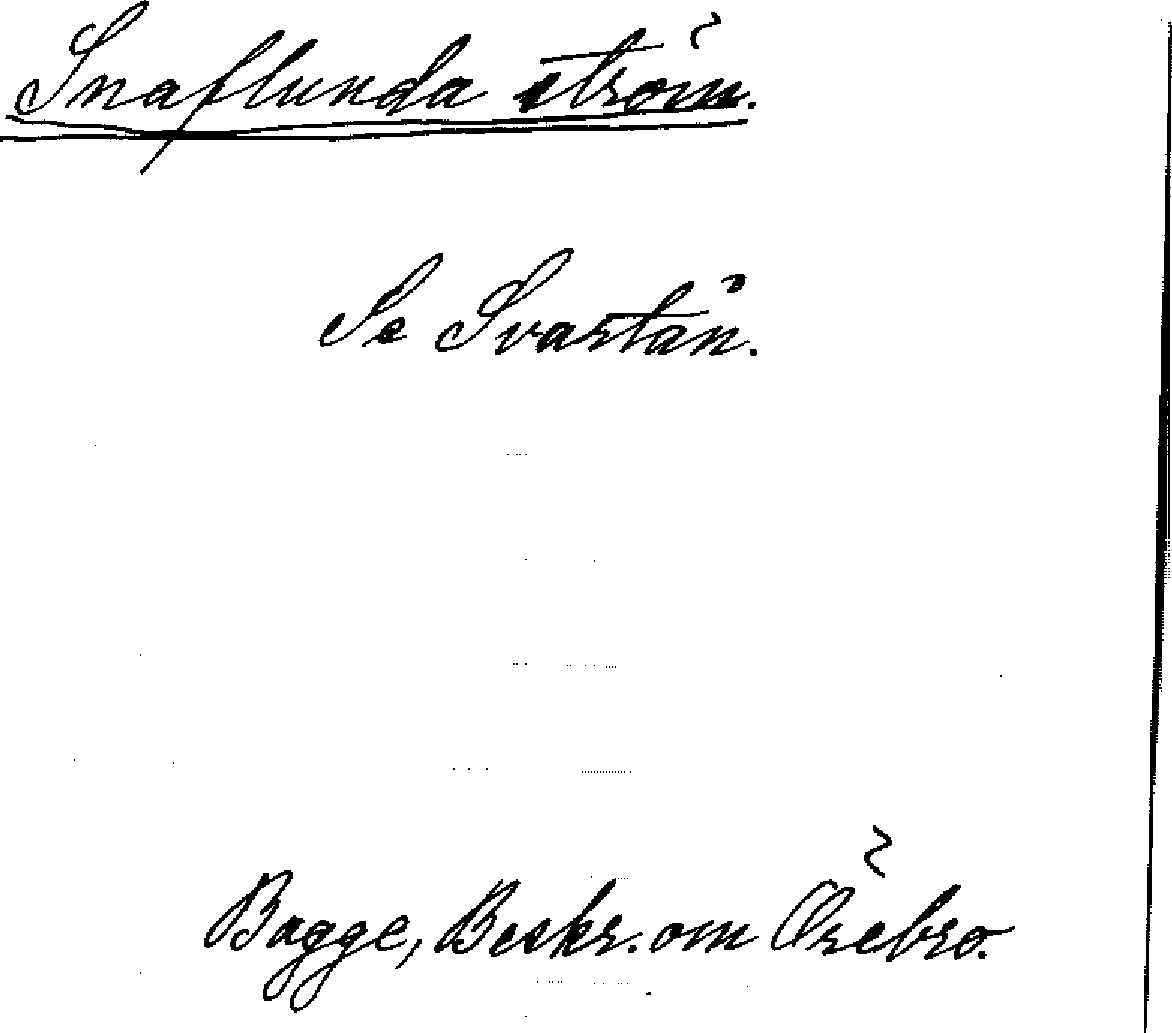 Snaflunda ström.
Se Svartån.
Bagge, Beskr. om Örebro.